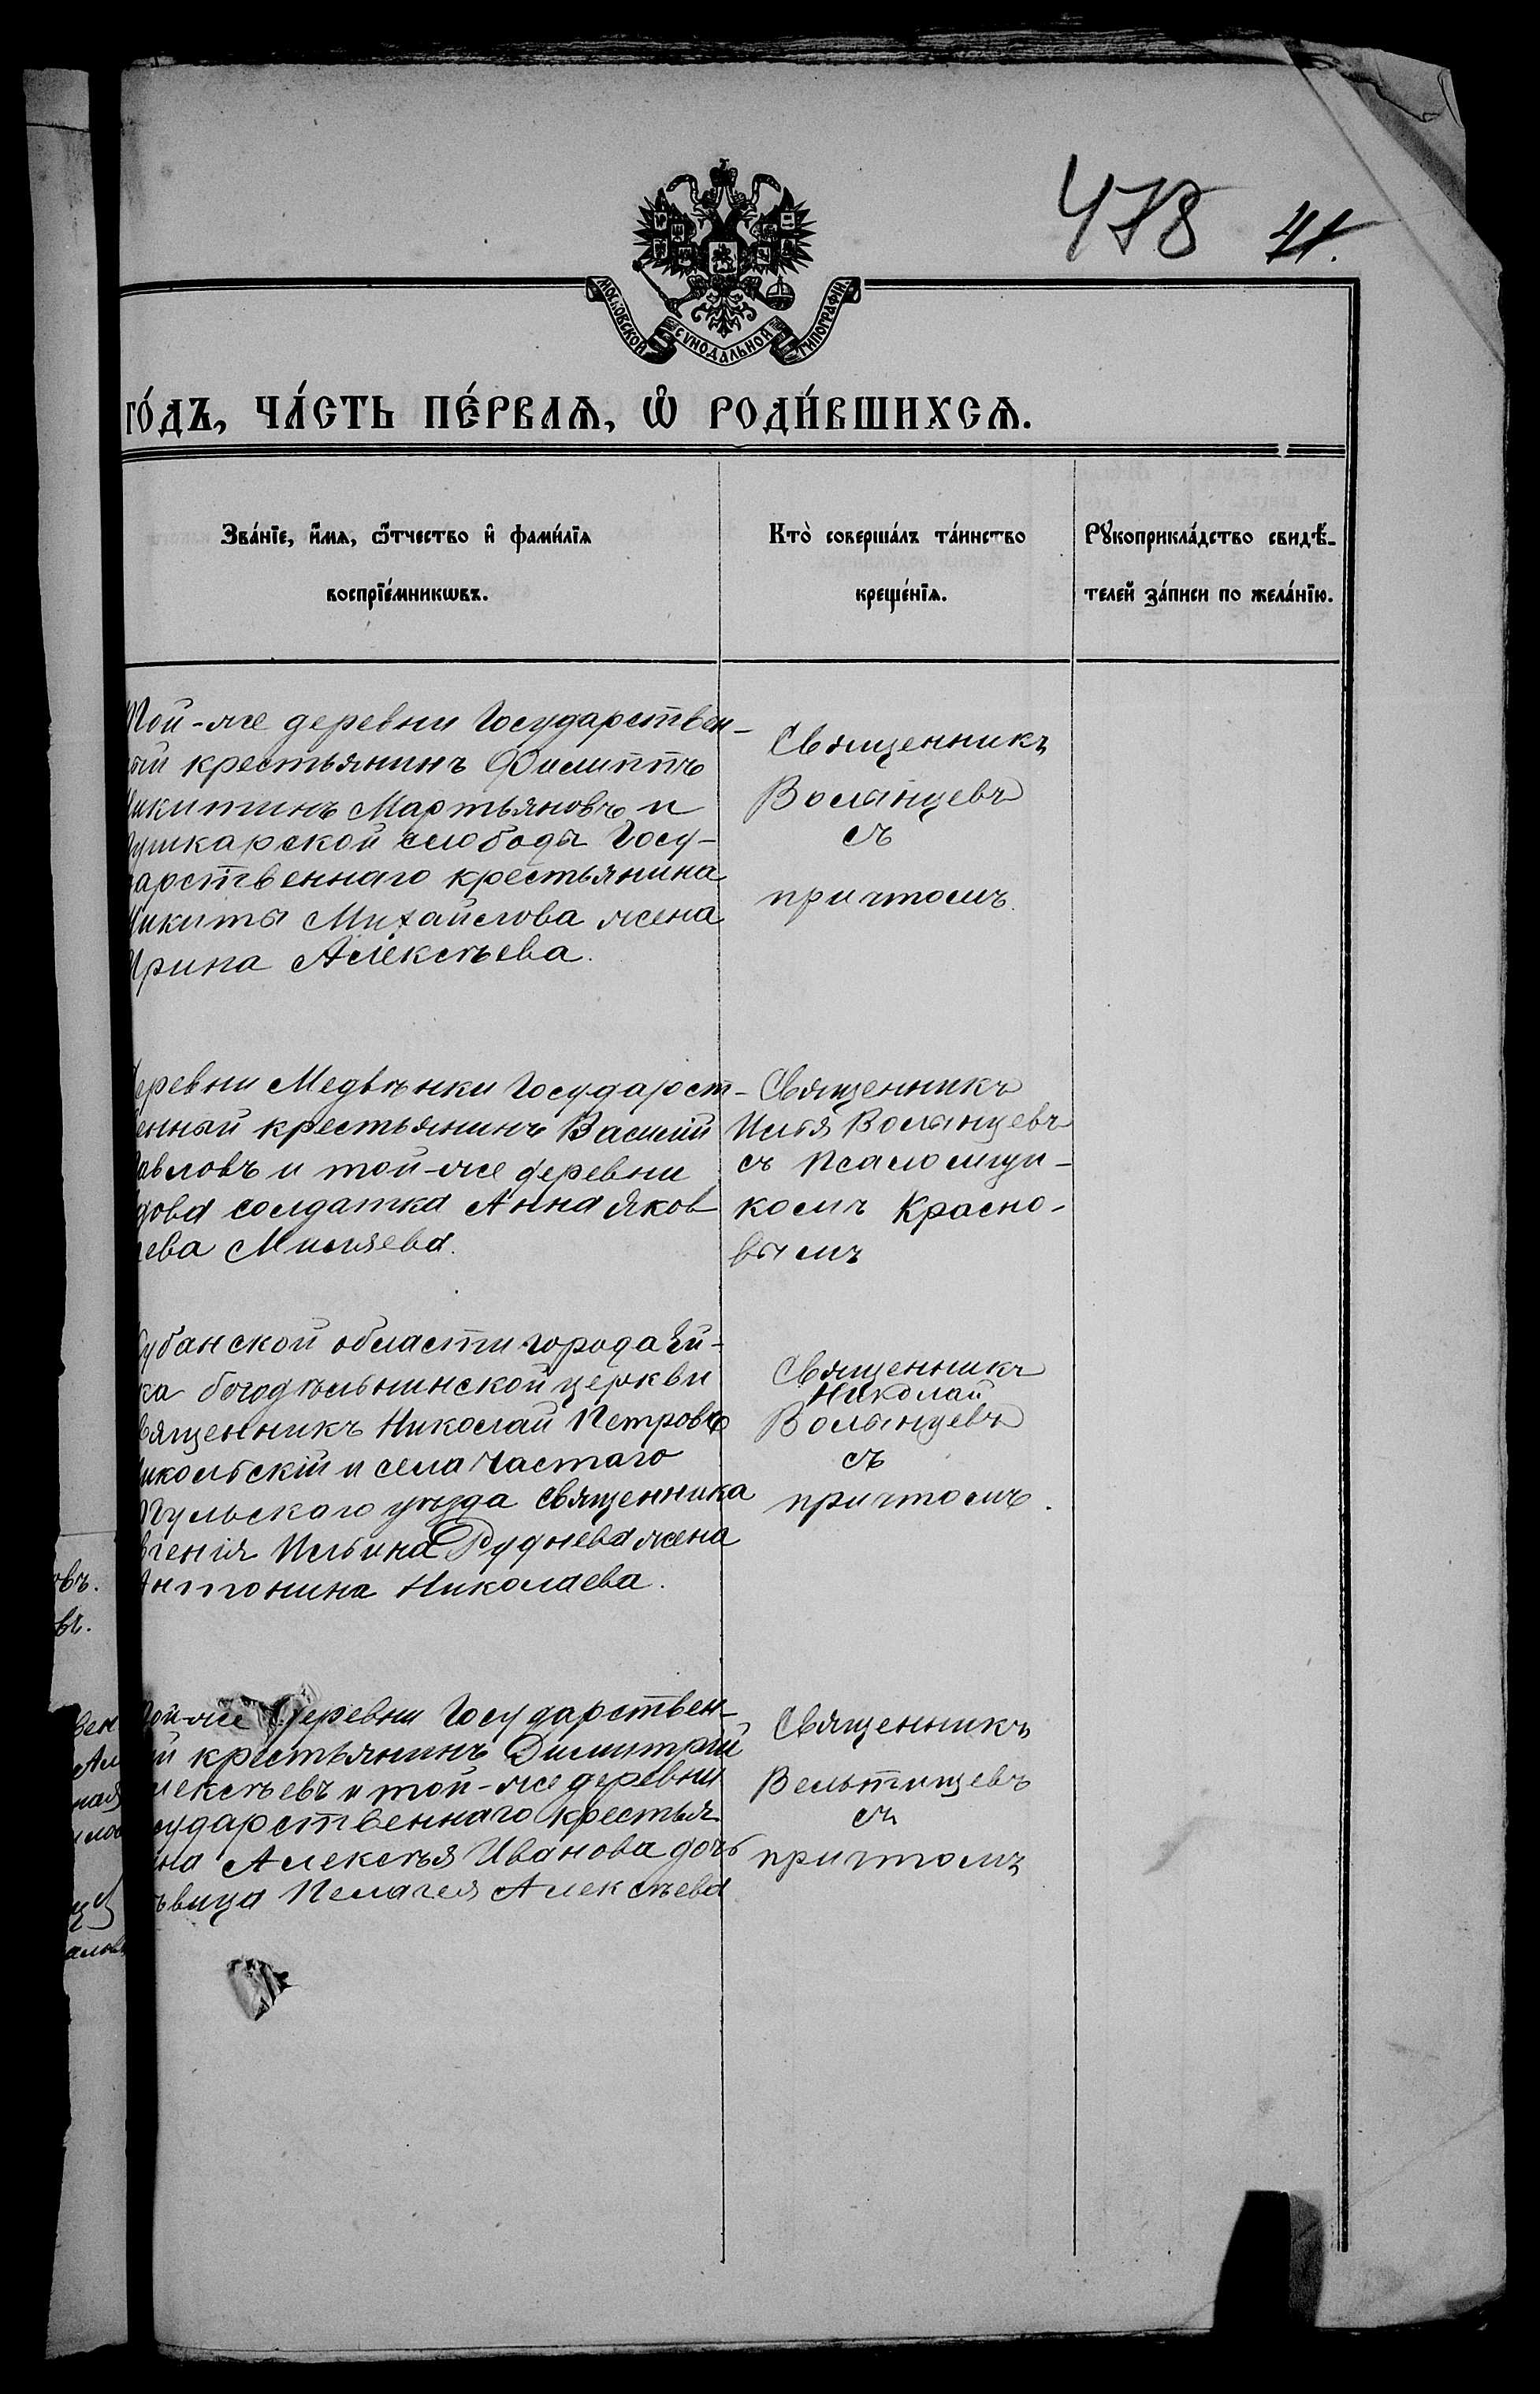 478 41.
МОСКОВСКОЙ СѴНОДАЛЬНОЙ ТИПОГРАФІИ
го́дъ, ча́сть пе́рваѧ, ѡ҆ роди́вшихсѧ.
Зва́нїе, и҆́мѧ, ѻ҆́тчество и҆ фамі́лїѧ
воспрїе́мникѡвъ.
Кто̀ соверша́лъ та́инство
креще́нїѧ.
Рꙋкоприкла́дство свидѣ́-
телей за́писи по жела́нїю.
Той-же деревни Государствен-
ый крестьянинъ Филиппъ
икитинъ Мартьяновъ и
ушкарской слободы Госу-
дарственнаго крестьянина
Никиты Михайлова жена
Ирина Алексѣева.
Священникъ
Волынцевъ
съ
причтомъ.
еревни Медвѣнки Государст-
енный крестьянинъ Василій
авловъ и той-же деревни
дова солдатка Анна Яков
лева Миляева.
Священникъ
Илія Волынцевъ
съ Псаломщи-
комъ Красно-
вымъ
Кубанской области города Ей-
ка богодѣльнинской церкви
вященникъ Николай Петровъ
икольскій и села Частаго
Тульскаго уѣзда священника
вгенія Ильина Руднева жена
Антонина Николаева.
Священникъ
Николай
Волынцевъ
съ
причтомъ.
ой-же деревни Государствен-
ый крестьянинъ Димитрій
лексѣевъ и той-же деревни
сударственнаго крестья
ина Алексѣя Иванова дочь
ѣвица Пелагея Алексѣева
Священникъ
Вельтищевъ
съ
причтомъ
овъ.
въ.
вен
Ал
ная